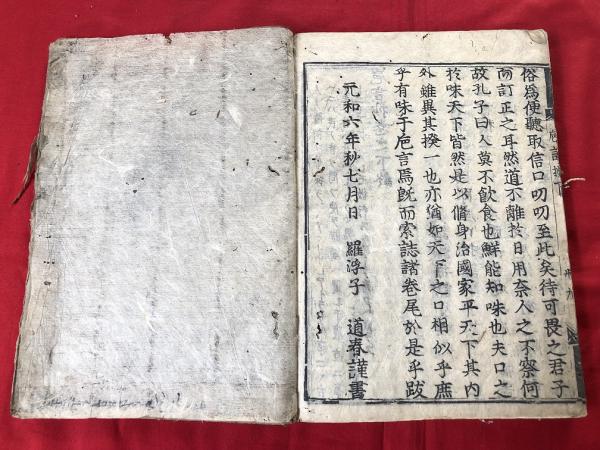 俗爲便聽取信口叨叨至此矣待可畏之君子
而訂正之耳然道不離於日用奈人之不察何
故孔子曰人莫不飲食也鮮能知味也夫口之
於味天下皆然是以脩身治國家平天下其内
外雖異其揆一也亦猶如天下之口相似乎庶
乎有味于巵言爲既而索誌諸卷尾於是乎跋
元和六年秒七月日 羅浮子 道春謹書